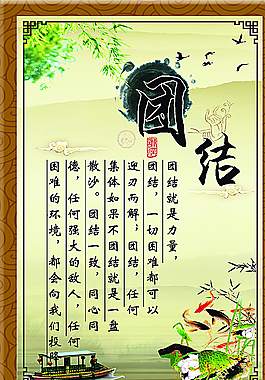 团结
团结就是力量，
团结，一切困难都可以
迎刃而解；团结，任何
集体如果不团结就是一盘
散沙。团结一致，同心同
德，任何强大的敌人，任何
困难的环境，都会向我们投降